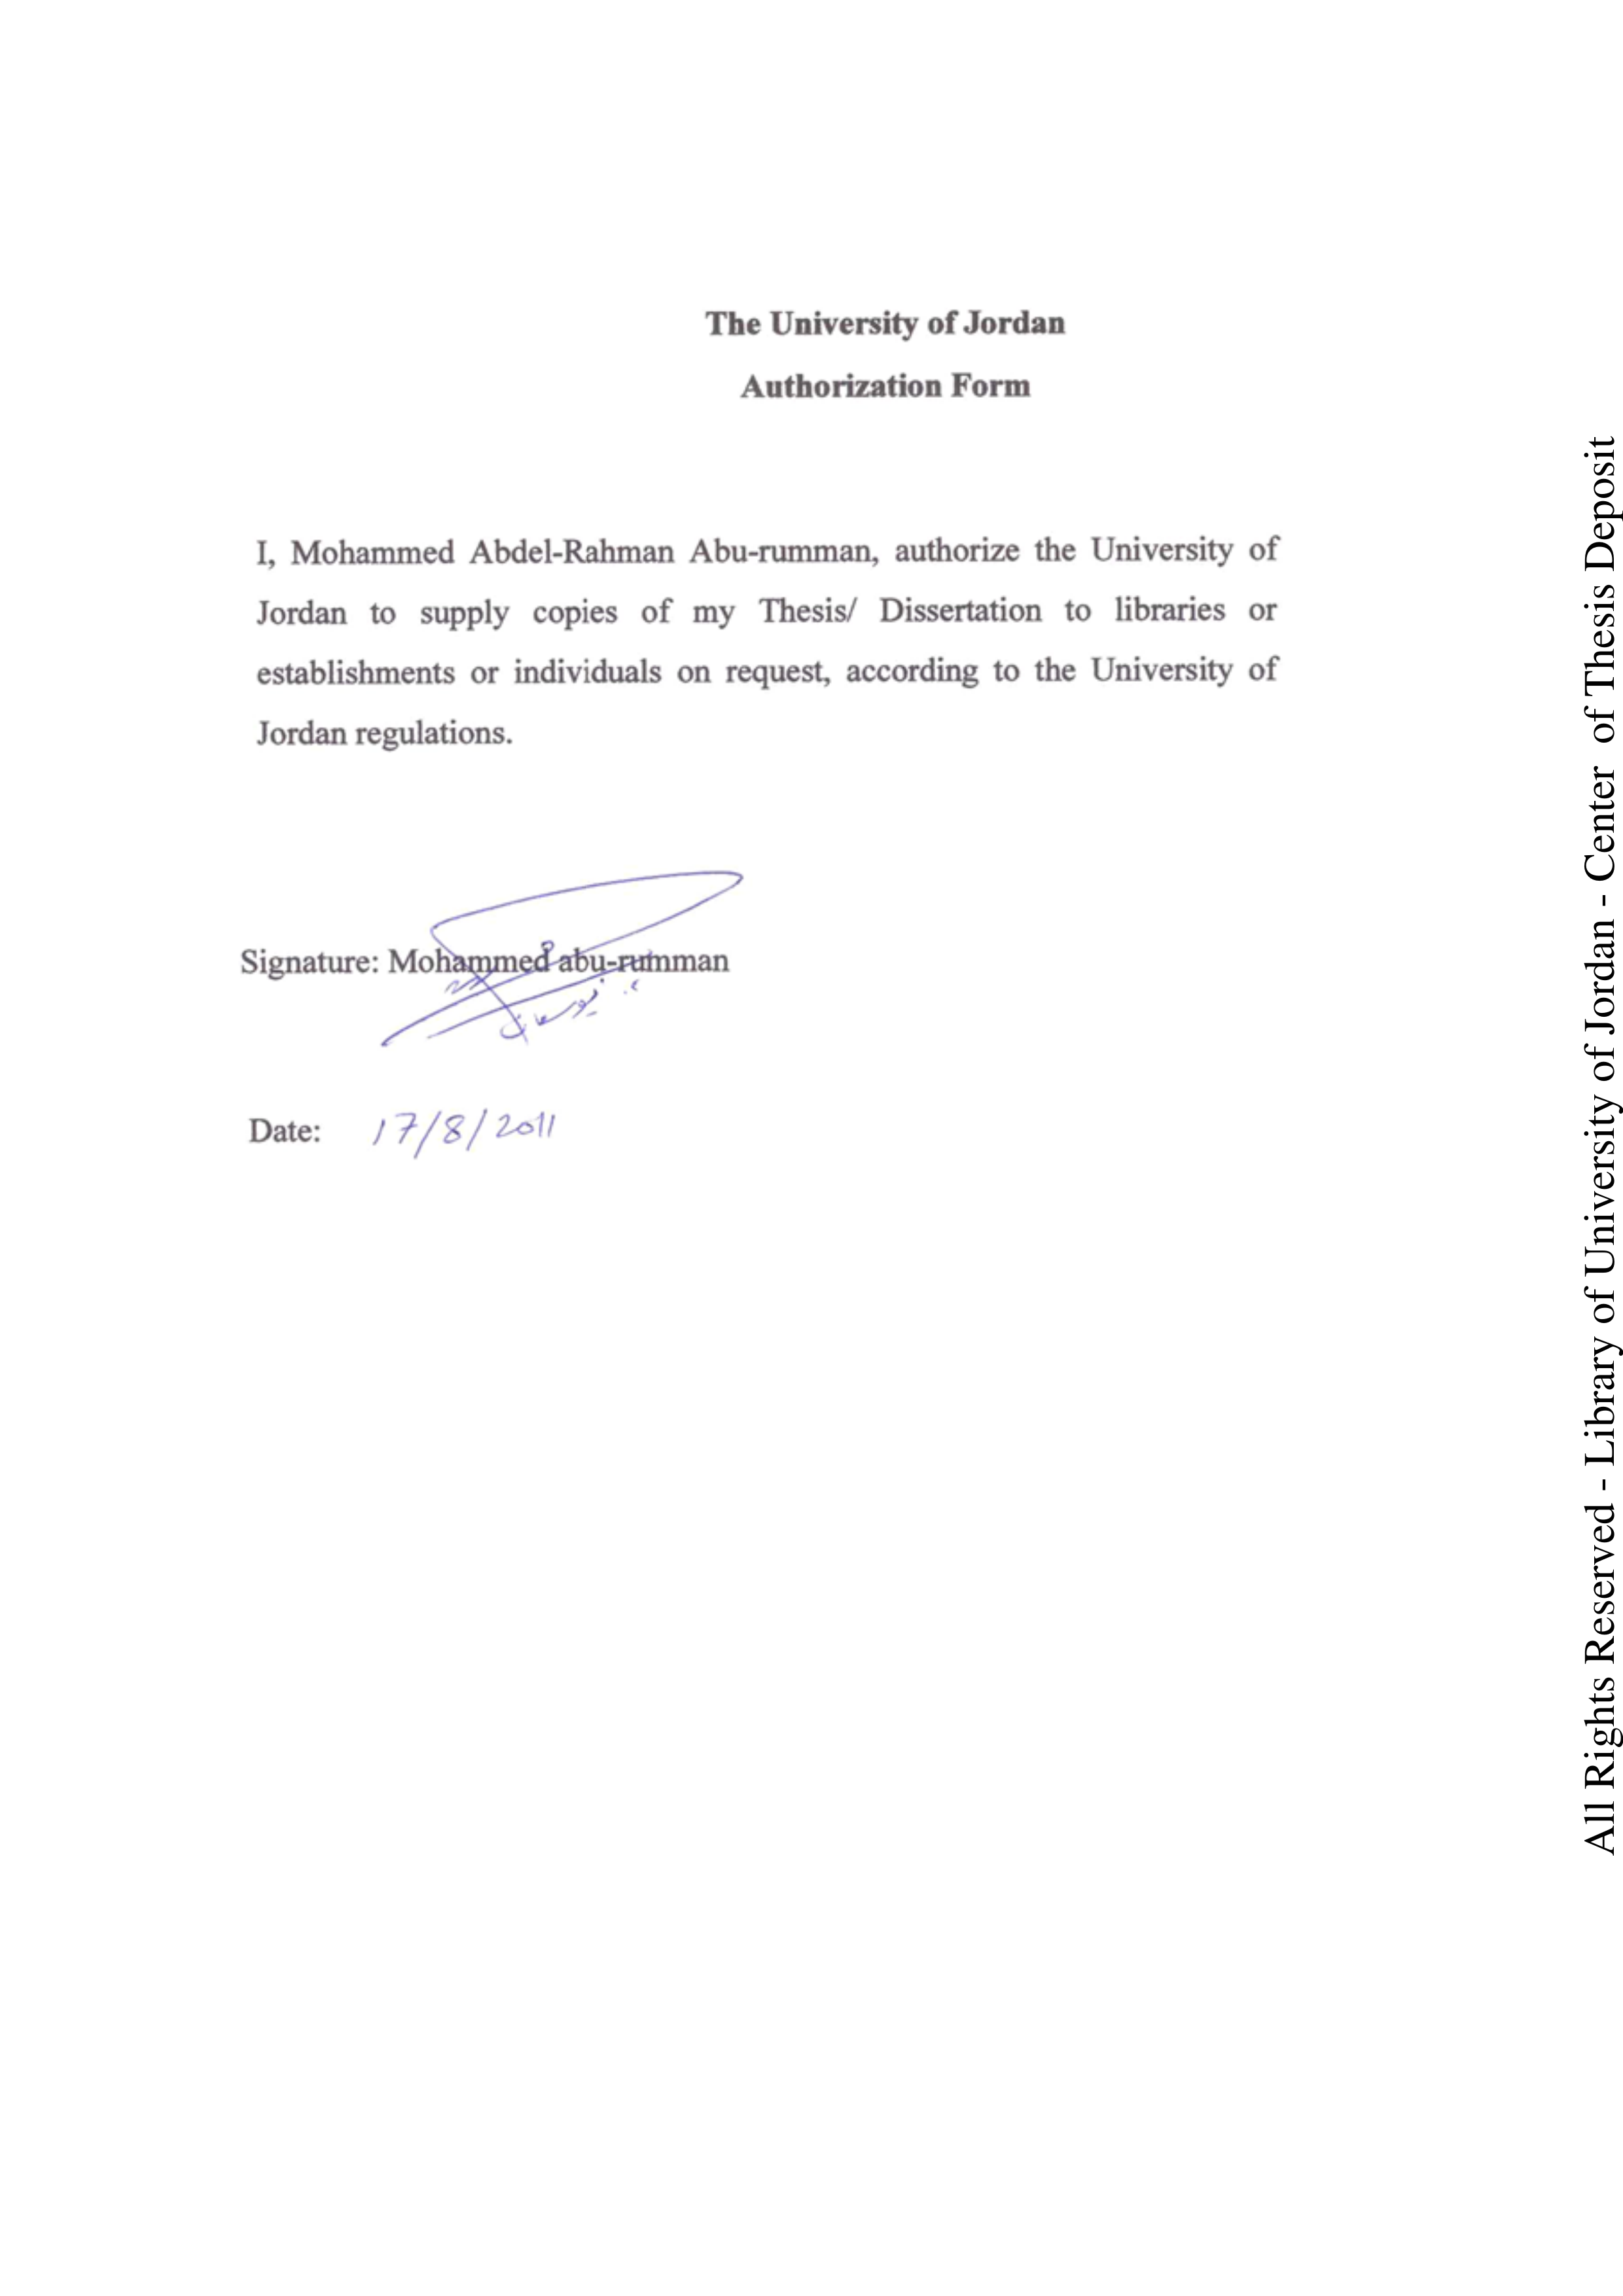 The University of Jordan
Authorization Form
I, Mohammed Abdel-Rahman Abu-rumman, authorize the University of
Jordan to supply copies of my Thesis/ Dissertation to libraries or
establishments or individuals on request, according to the University of
Jordan regulations.
Signature: Mohammed abu-rumman
Date: 17/8/2011
All Rights Reserved - Library of University of Jordan - Center of Thesis Deposit